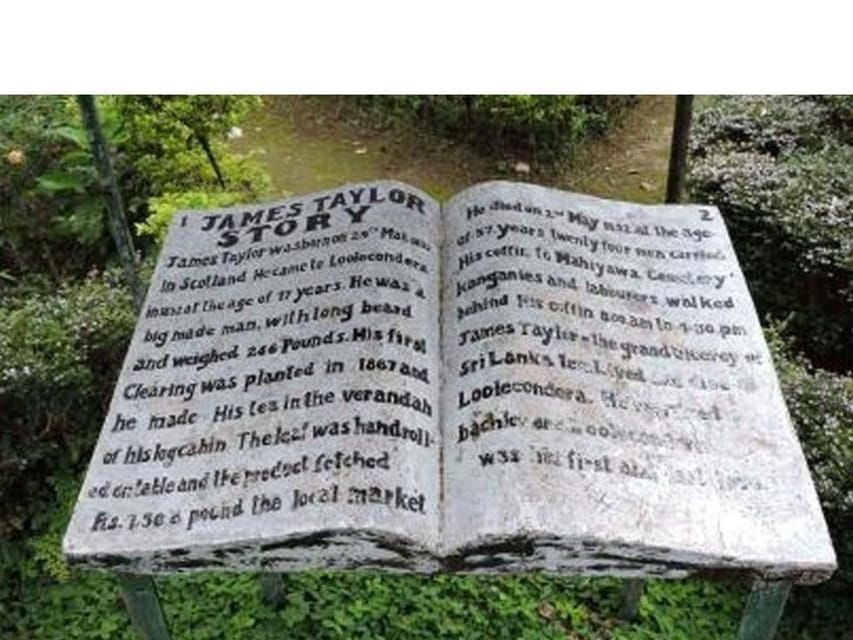 1
JAMES TAYLOR
STORY
James Taylor was born on 29th Mar
in Scotland He came to Loolecondera
at the age of 17 years. He was a
big made man, with long beard
and weighed 246 Pounds. His first
Clearing was planted in 1867 and
he made His tea in the verandah
of his logcabin The leaf was handroll-
ed on table and the product fetched
Rs. 1.50 a pound the local market
2
He died on 2nd May at the age
of 57 years twenty four men carried
His coffin to Mahiyawa Cemetery
kanganies and labourers walked
behind His coffin 8.00 am to 4.30 pm
James Taylor - the grand
Sri Lanka tea. Lived
Loolecondera. He
bachler and Loolecondera
was his first and last love